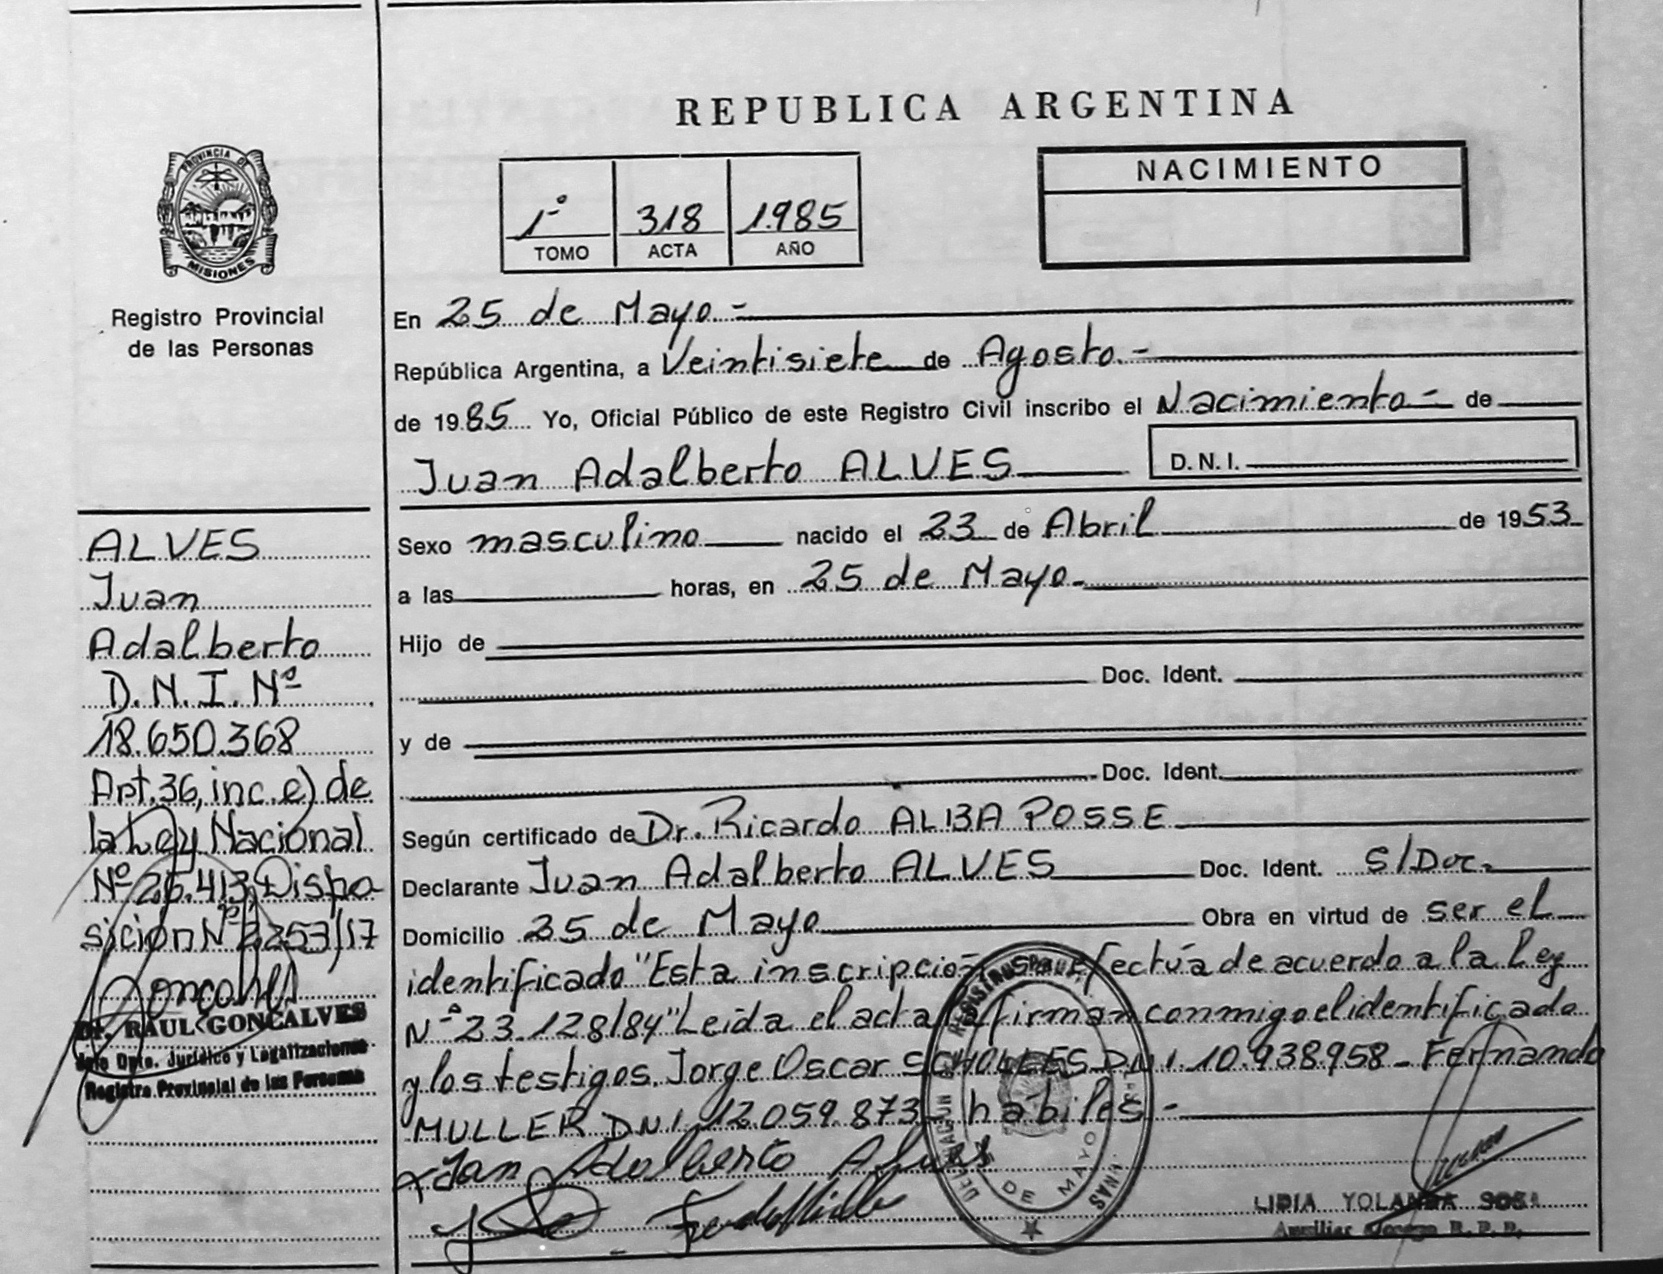 REPUBLICA ARGENTINA
PROVINCIA DE
MISIONES
Registro Provincial
de las Personas
1º 318 1985
TOMO ACTA AÑO
NACIMIENTO
En 25 de Mayo.=
República Argentina, a Veintisiete de Agosto.-
de 1985 Yo, Oficial Público de este Registro Civil inscribo el Nacimiento= de
Juan Adalberto ALVES
D.N.I.
Sexo masculino nacido el 23 de Abril de 1953
a las horas, en 25 de Mayo-
Hijo de
Doc. Ident.
y de
Doc. Ident.
Según certificado de Dr. Ricardo ALBA POSSE
Declarante Juan Adalberto ALVES Doc. Ident. S/Doc.
Domicilio 25 de Mayo Obra en virtud de ser el
identificado "Esta inscripción se efectúa de acuerdo a la Ley
N-º 23.128/84" Leida el acta la firman conmigo el identificado
y los testigos. Jorge Oscar SCHOLLES DNI. 10.938958- Fernando
MULLER DNI. 12.059.873- habiles.-
ALVES
Juan
Adalberto
D.N.I. Nº
18.650.368
Art. 36, inc. e) de
la Ley Nacional
Nº 26.413, Dispo
sición Nº 2253/17
Dr. RAUL GONCALVES
Jefe Dpto. Jurídico y Legalizaciones
Registro Provincial de las Personas
DE MAYO
LIDIA YOLANDA SOSA
Auxiliar R.P.P.